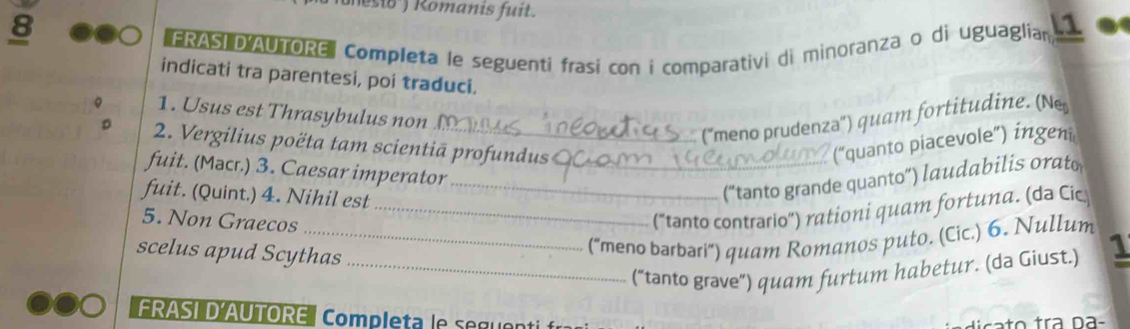 ) Romanis fuit.
8
L1
FRASI D'AUTORE Completa le seguenti frasi con i comparativi di minoranza o di uguaglian
indicati tra parentesi, poi traduci.
1. Usus est Thrasybulus non minus ("meno prudenza") quam fortitudine. (Nep
2. Vergilius poëta tam scientiā profundus quam ("quanto piacevole") ingeni
fuit. (Macr.) 3. Caesar imperator ("tanto grande quanto") laudabilis orato
fuit. (Quint.) 4. Nihil est ("tanto contrario") rationi quam fortuna. (da Cic
5. Non Graecos ("meno barbari") quam Romanos puto. (Cic.) 6. Nullum
scelus apud Scythas ("tanto grave") quam furtum habetur. (da Giust.)
1
FRASI D'AUTORE Completa le seguenti
tra pa-